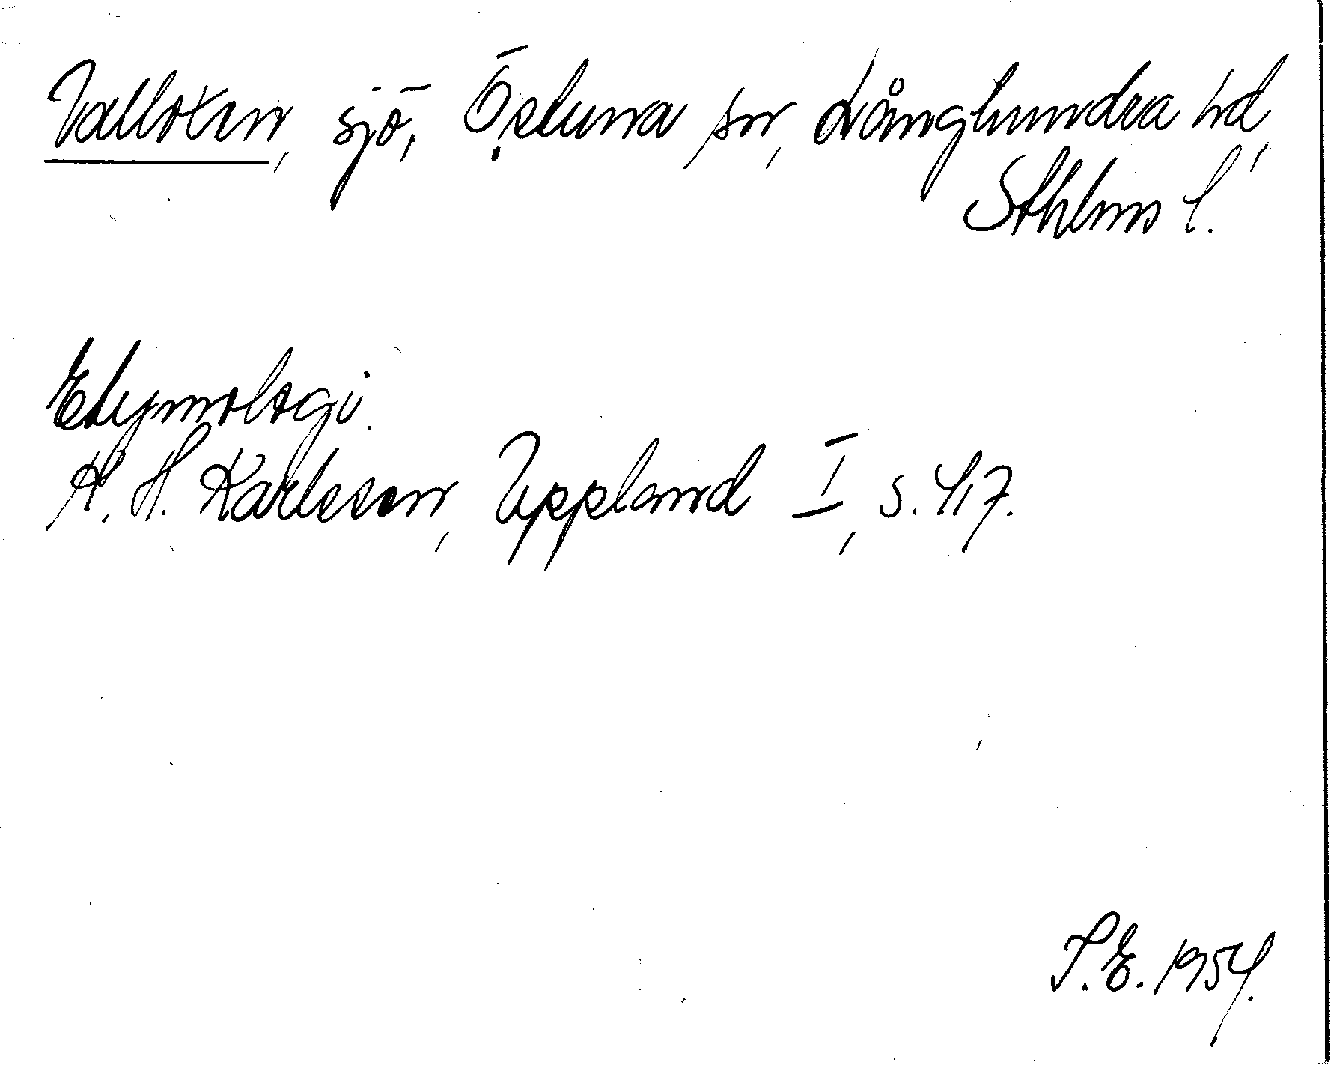 Valloxen, sjö, Östuna sn, Långhundra hd,
Sthlms l.
Etymologi.
K. H. Karlsson, Uppland I, s. 417.
S.E. 1954.